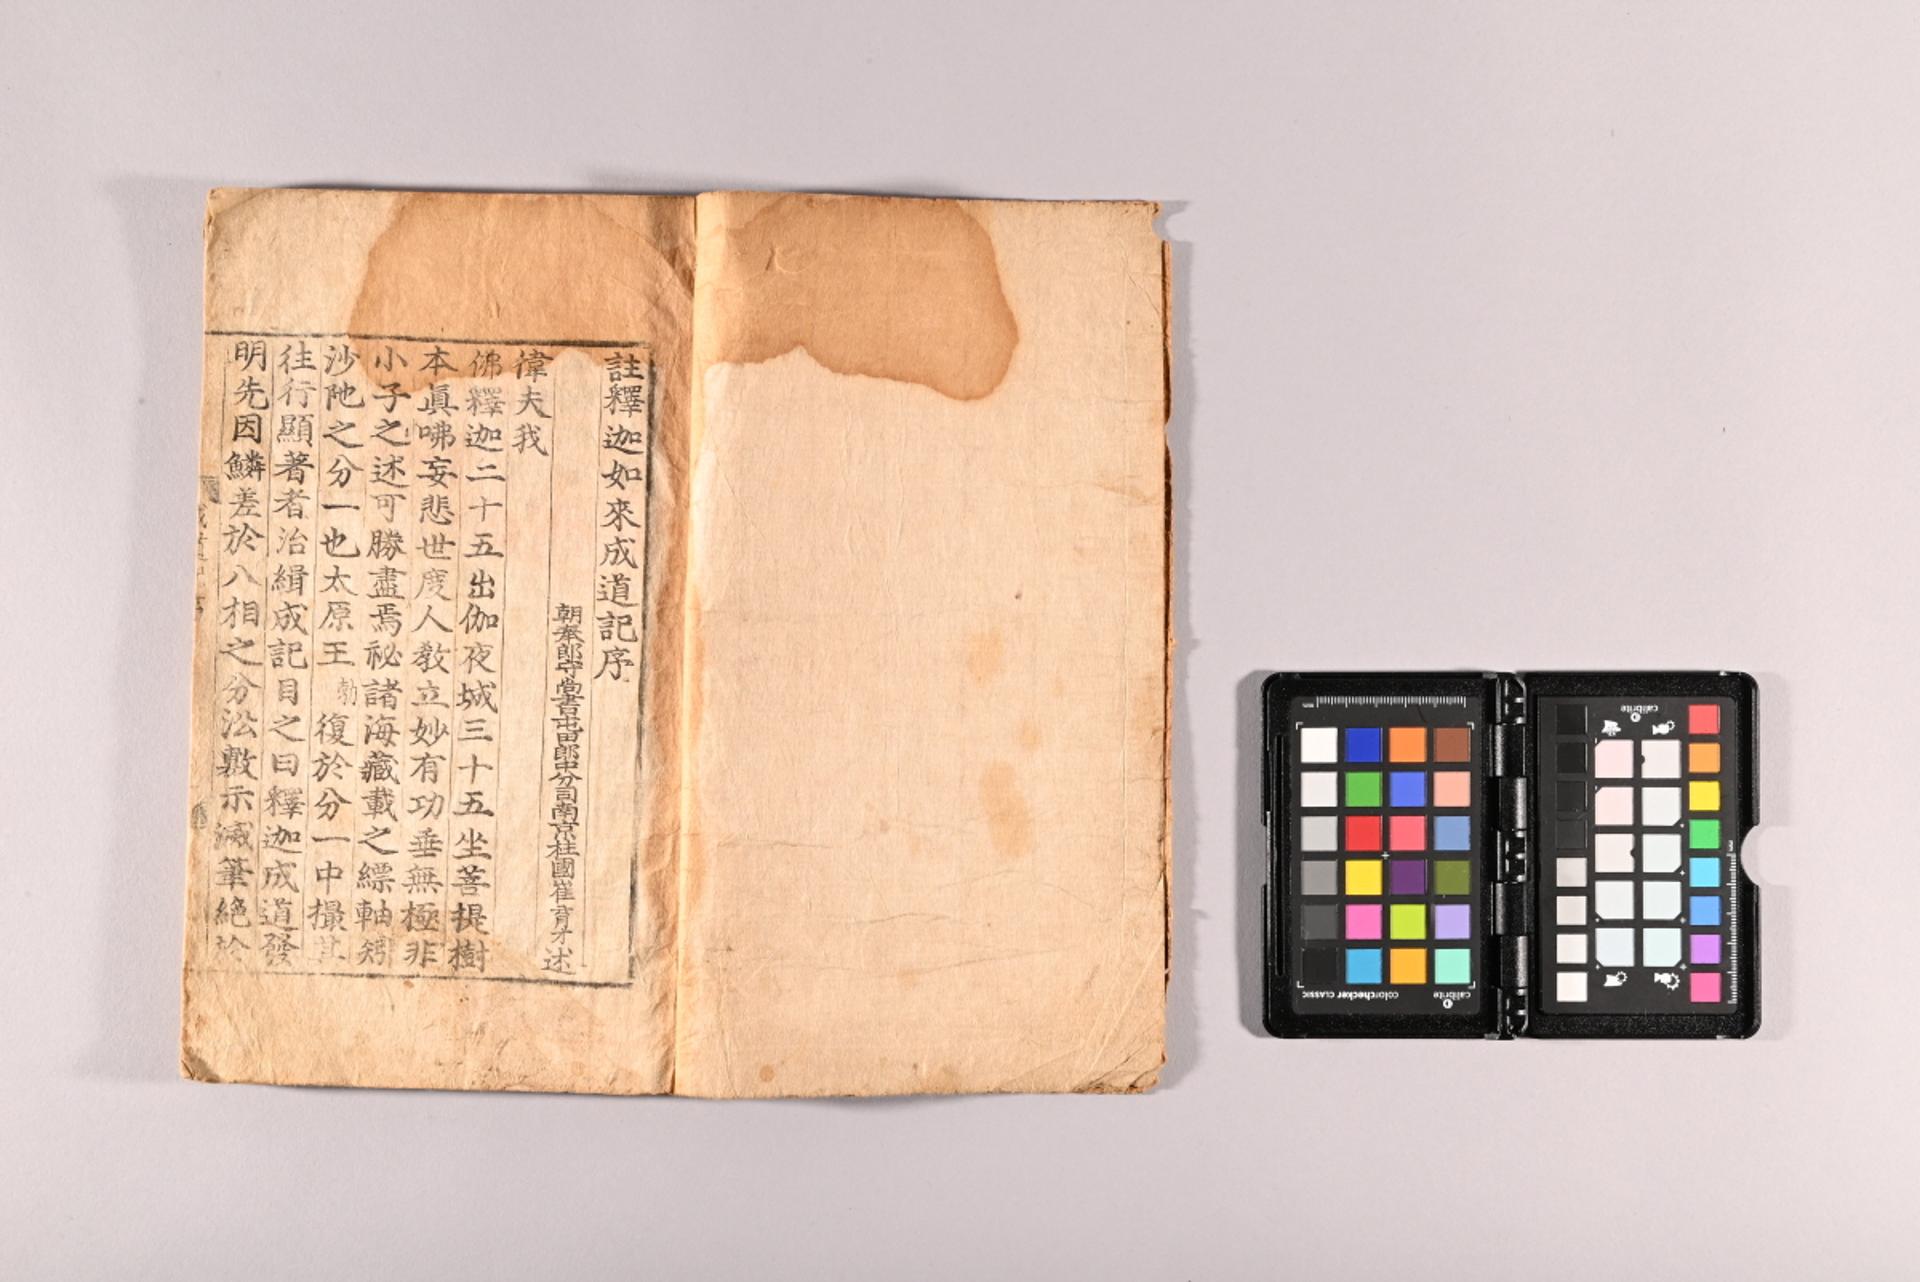 註釋迦如來成道記序
朝奉郎守尚書屯田郎中分司南京柱國崔育才述
偉夫我
佛釋迦二十五出伽夜城三十五坐菩提樹
本眞咈妄悲世度人敎立妙有功垂無極非
小子之述可勝盡焉祕諸海藏載之縹軸矧
沙陁之分一也太原王勃復於分一中撮其
徃行顯著者治緝成記目之曰釋迦成道發
明先因鱗差於八相之分㳂敷示滅筆絶於
calibrite
colorchecker CLASSIC
calibrite